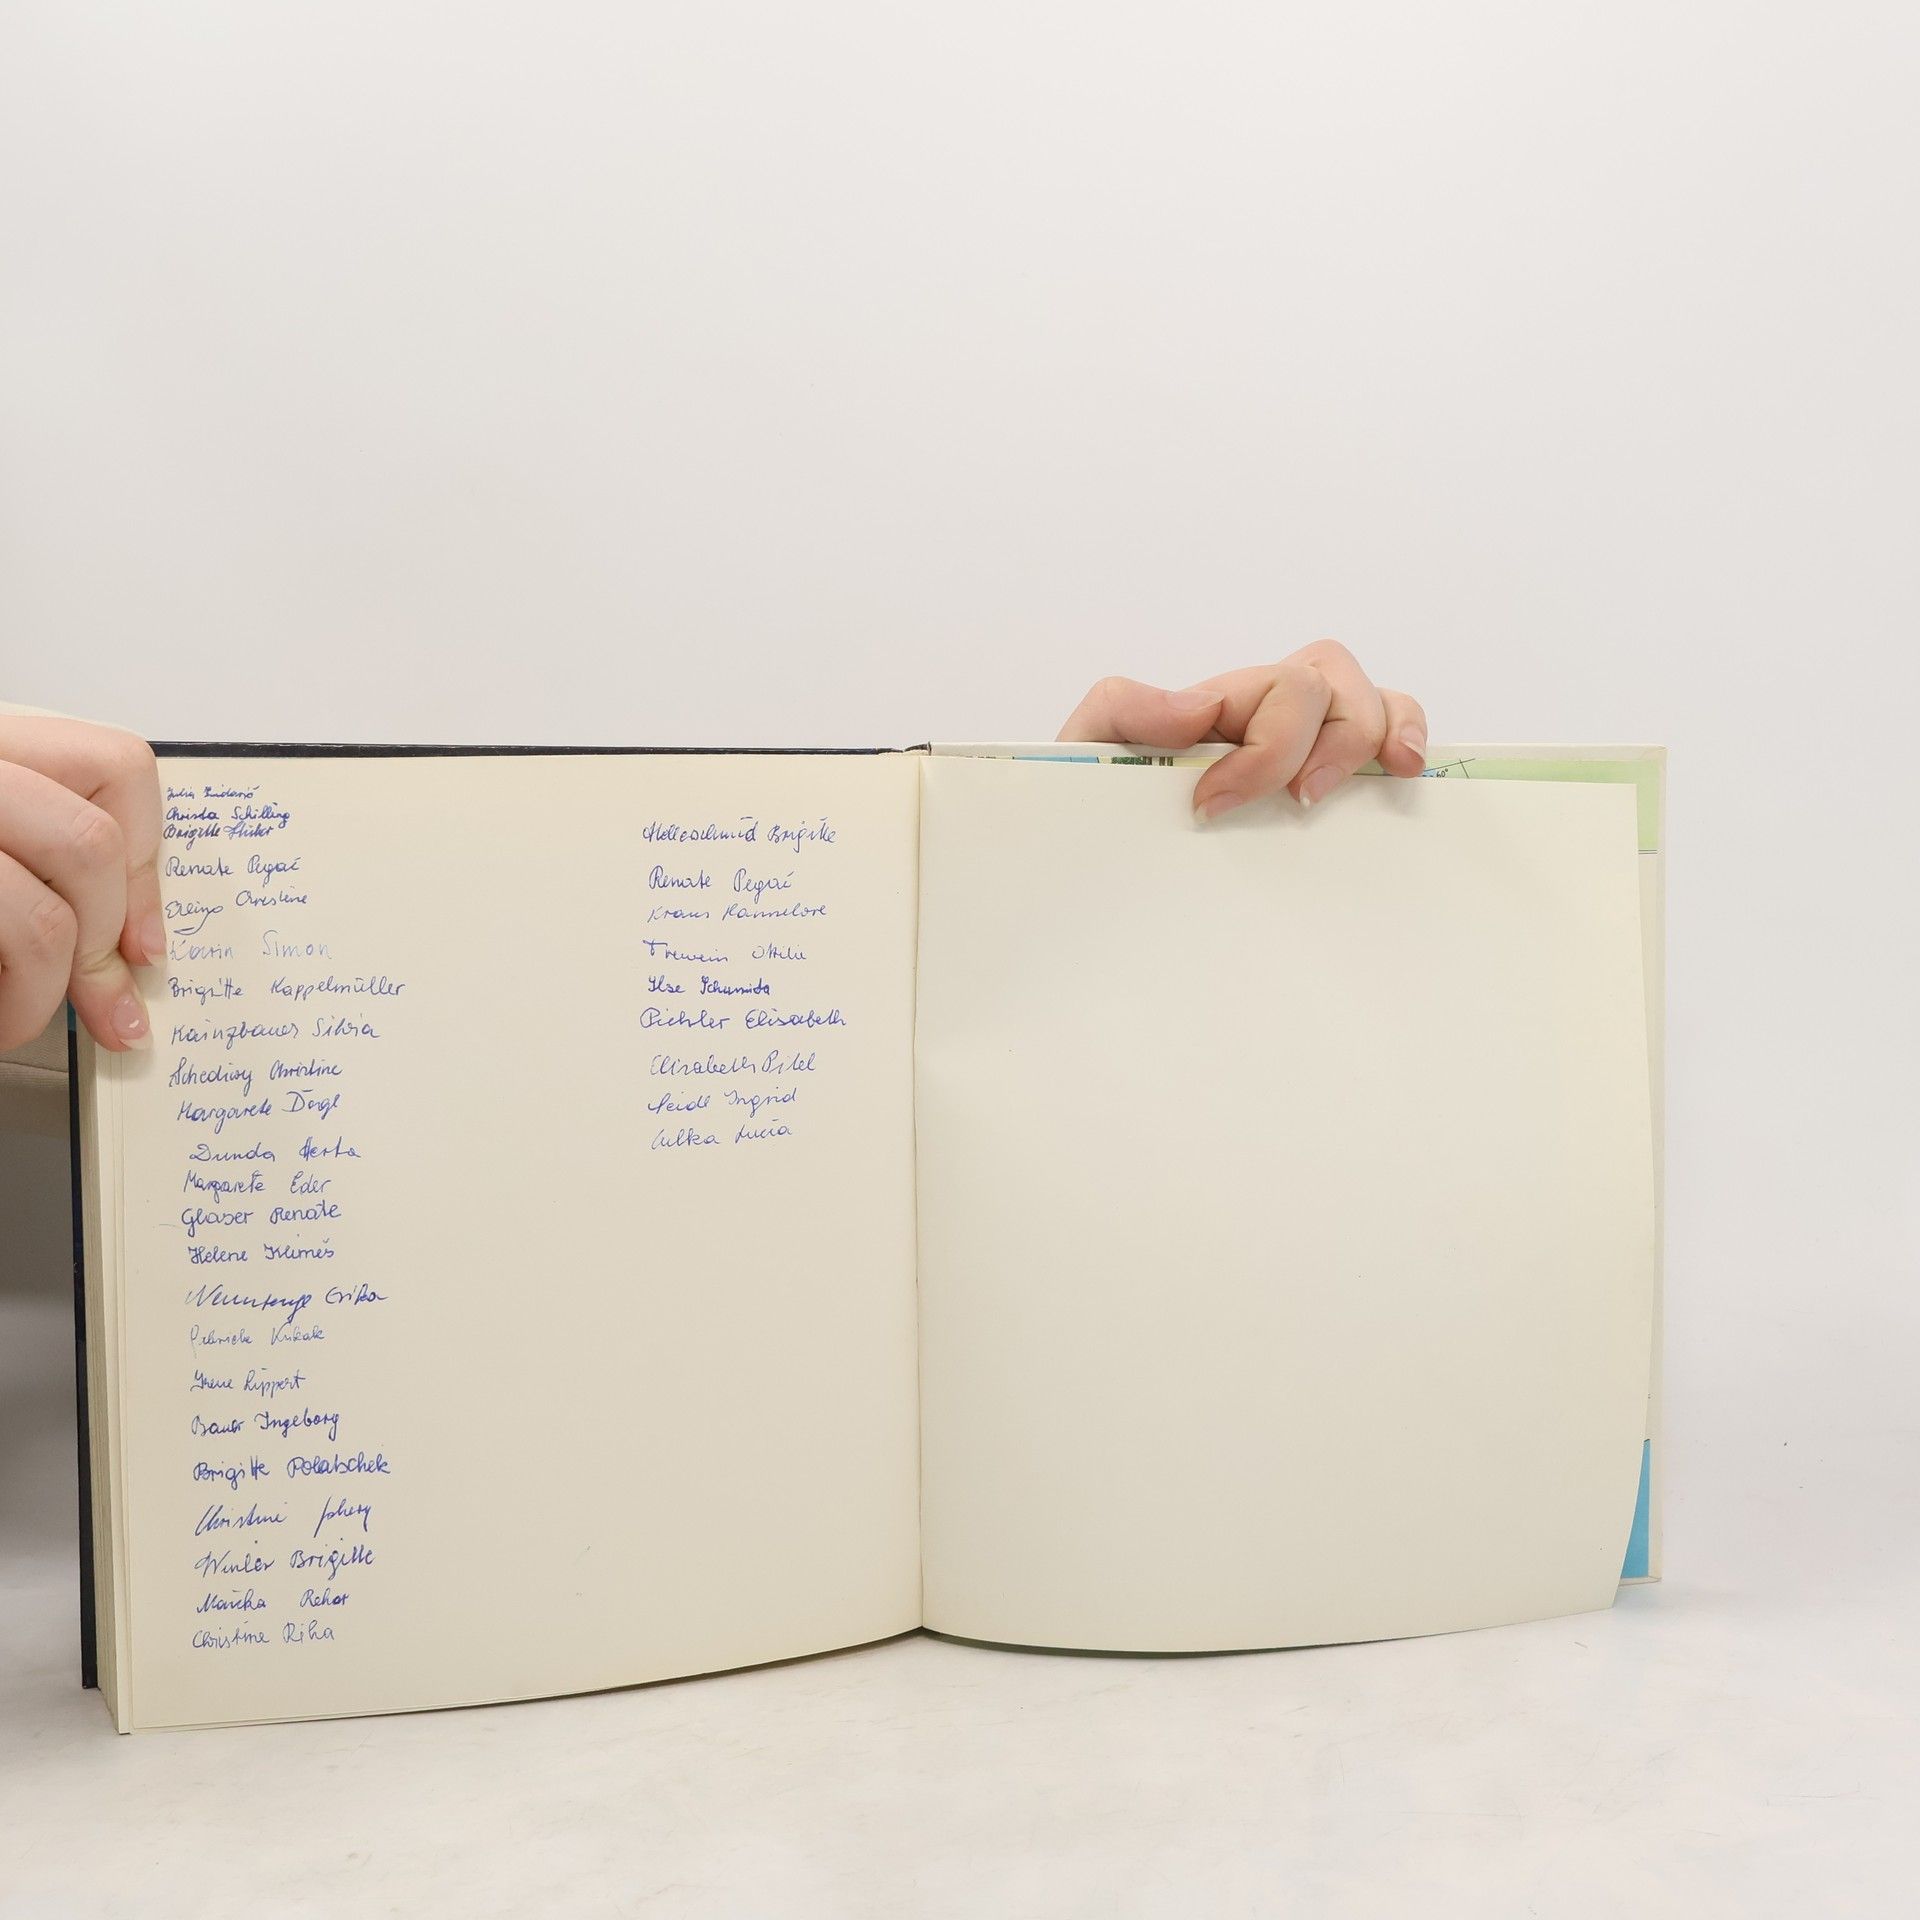 Julia
Christa Schilling
Brigitte
Renate Pegač
Christine
Karin Simon
Brigitte Kappelmüller
Kainzbauer Silvia
Schediwy Christine
Margarete
Dunda Herta
Margarete Eder
Glaser Renate
Helene Klimeš
Erika
Gabriele Kukak
Irene Lippert
Bauer Ingeborg
Brigitte Polatschek
Christine
Winter Brigitte
Rehor
Christine Riha
Brigitte
Renate Pegač
Kraus Hannelore
Ottilie
Ilse Schumita
Pichler Elisabeth
Elisabeth Pitel
Seidl Ingrid
Culka Lucia
60°